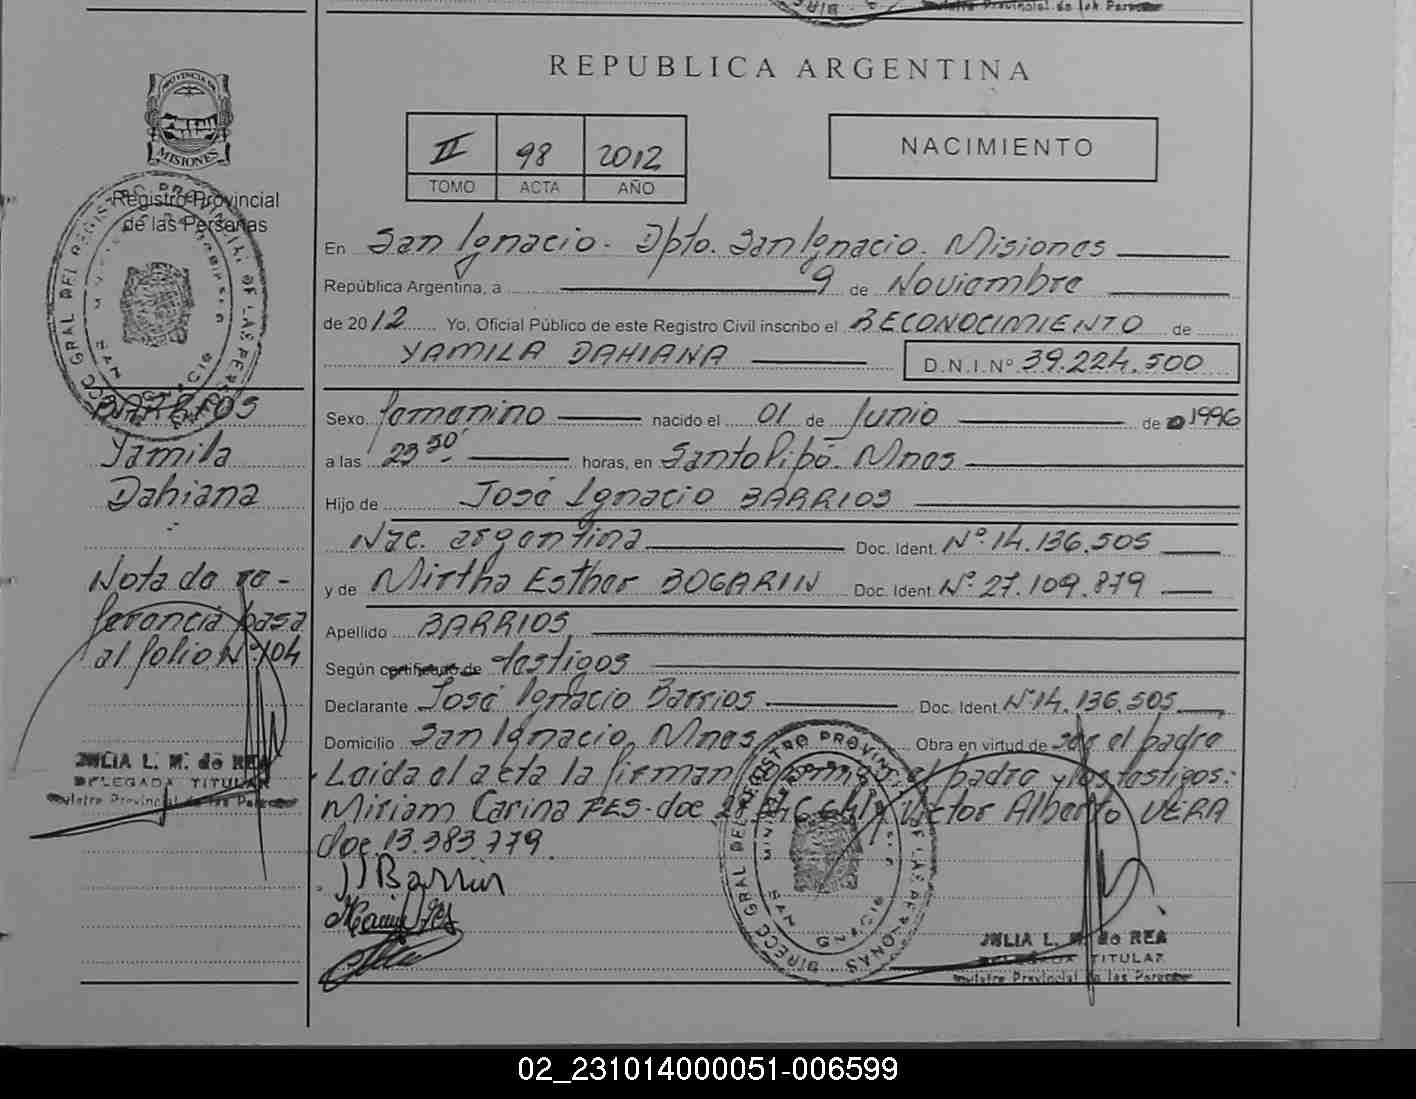 Registro Provincial de las Personas
REPUBLICA ARGENTINA
II 98 2012
TOMO ACTA AÑO
NACIMIENTO
MISIONES
Registro Provincial
de las Personas
En San Ignacio - Dpto. San Ignacio. Misiones
República Argentina, a 9 de Noviembre
de 2012 Yo, Oficial Público de este Registro Civil inscribo el RECONOCIMIENTO de
YAMILA DAHIANA D.N.I.Nº 39.224.500
Sexo femenino nacido el 01 de Junio de 1996
a las 23 50' horas, en Santo Pipó. Mnes
Hijo de José Ignacio BARRIOS
Nac. argentina Doc. Ident. Nº 14.136.505
y de Mirtha Esther BOGARIN Doc. Ident. Nº 27.109.879
Apellido BARRIOS
Según certificado de testigos
Declarante José Ignacio Barrios Doc. Ident. Nº 14.136.505
Domicilio San Ignacio, Mnes Obra en virtud de ser el padre
Leida el acta la firman el padre y los testigos:
Miriam Carina FES-doc Victor Alberto VERA
doc 13.383.779
JJBarrios
BARRIOS
Yamila
Dahiana
Nota de re-
ferencia pasa
al folio Nº 104
JULIA L. M. de REA
DELEGADA TITULAR
Registro Provincial de las Personas
DIRECC GRAL DEL REGISTRO PROVINCIAL DE LAS PERSONAS
SAN IGNACIO
JULIA L. M. de REA
DELEGADA TITULAR
Registro Provincial de las Personas
02_231014000051-006599